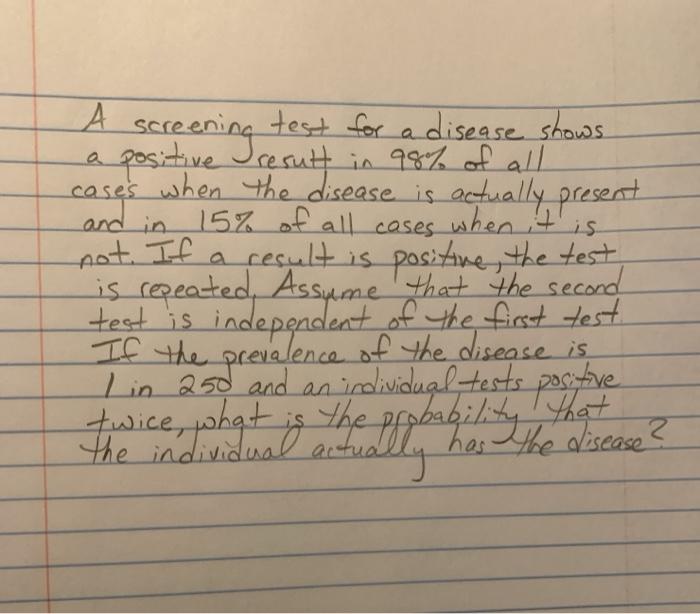 A screening test for a disease shows
a positive result in 98% of all
cases when the disease is actually present
and in 15% of all cases when it is
not. If a result is positive, the test
is repeated. Assume that the second
test is independent of the first test.
If the prevalence of the disease is
1 in 250 and an individual tests positive
twice, what is the probability that
the individual actually has the disease?